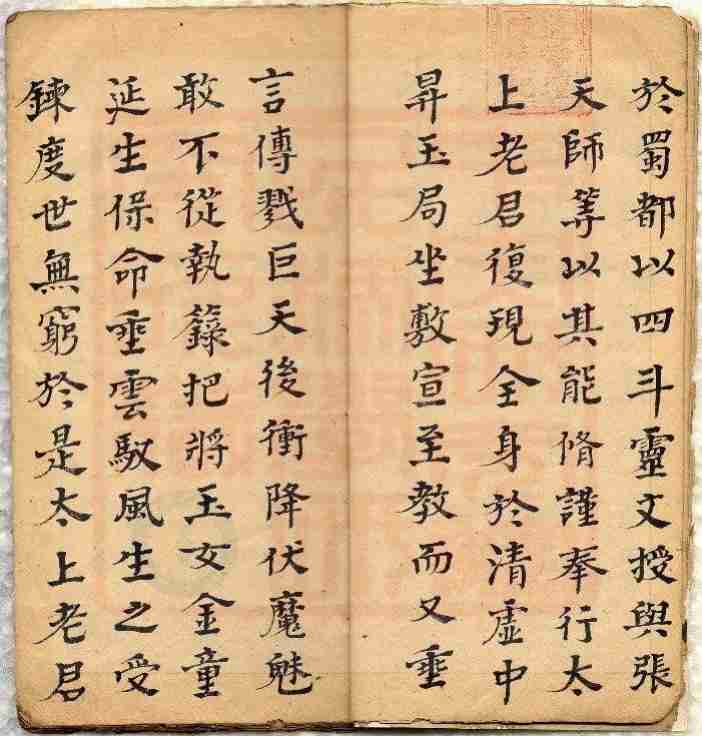 於蜀都以四斗靈文授與張
天師等以其能脩謹奉行太
上老君復現全身於清虛中
昇玉局坐敷宣至教而又垂
言傳戮巨天後衝降伏魔魅
敢不從執籙把將玉女金童
延生保命垂雲馭風生之受
鍊度世無窮於是太上老君